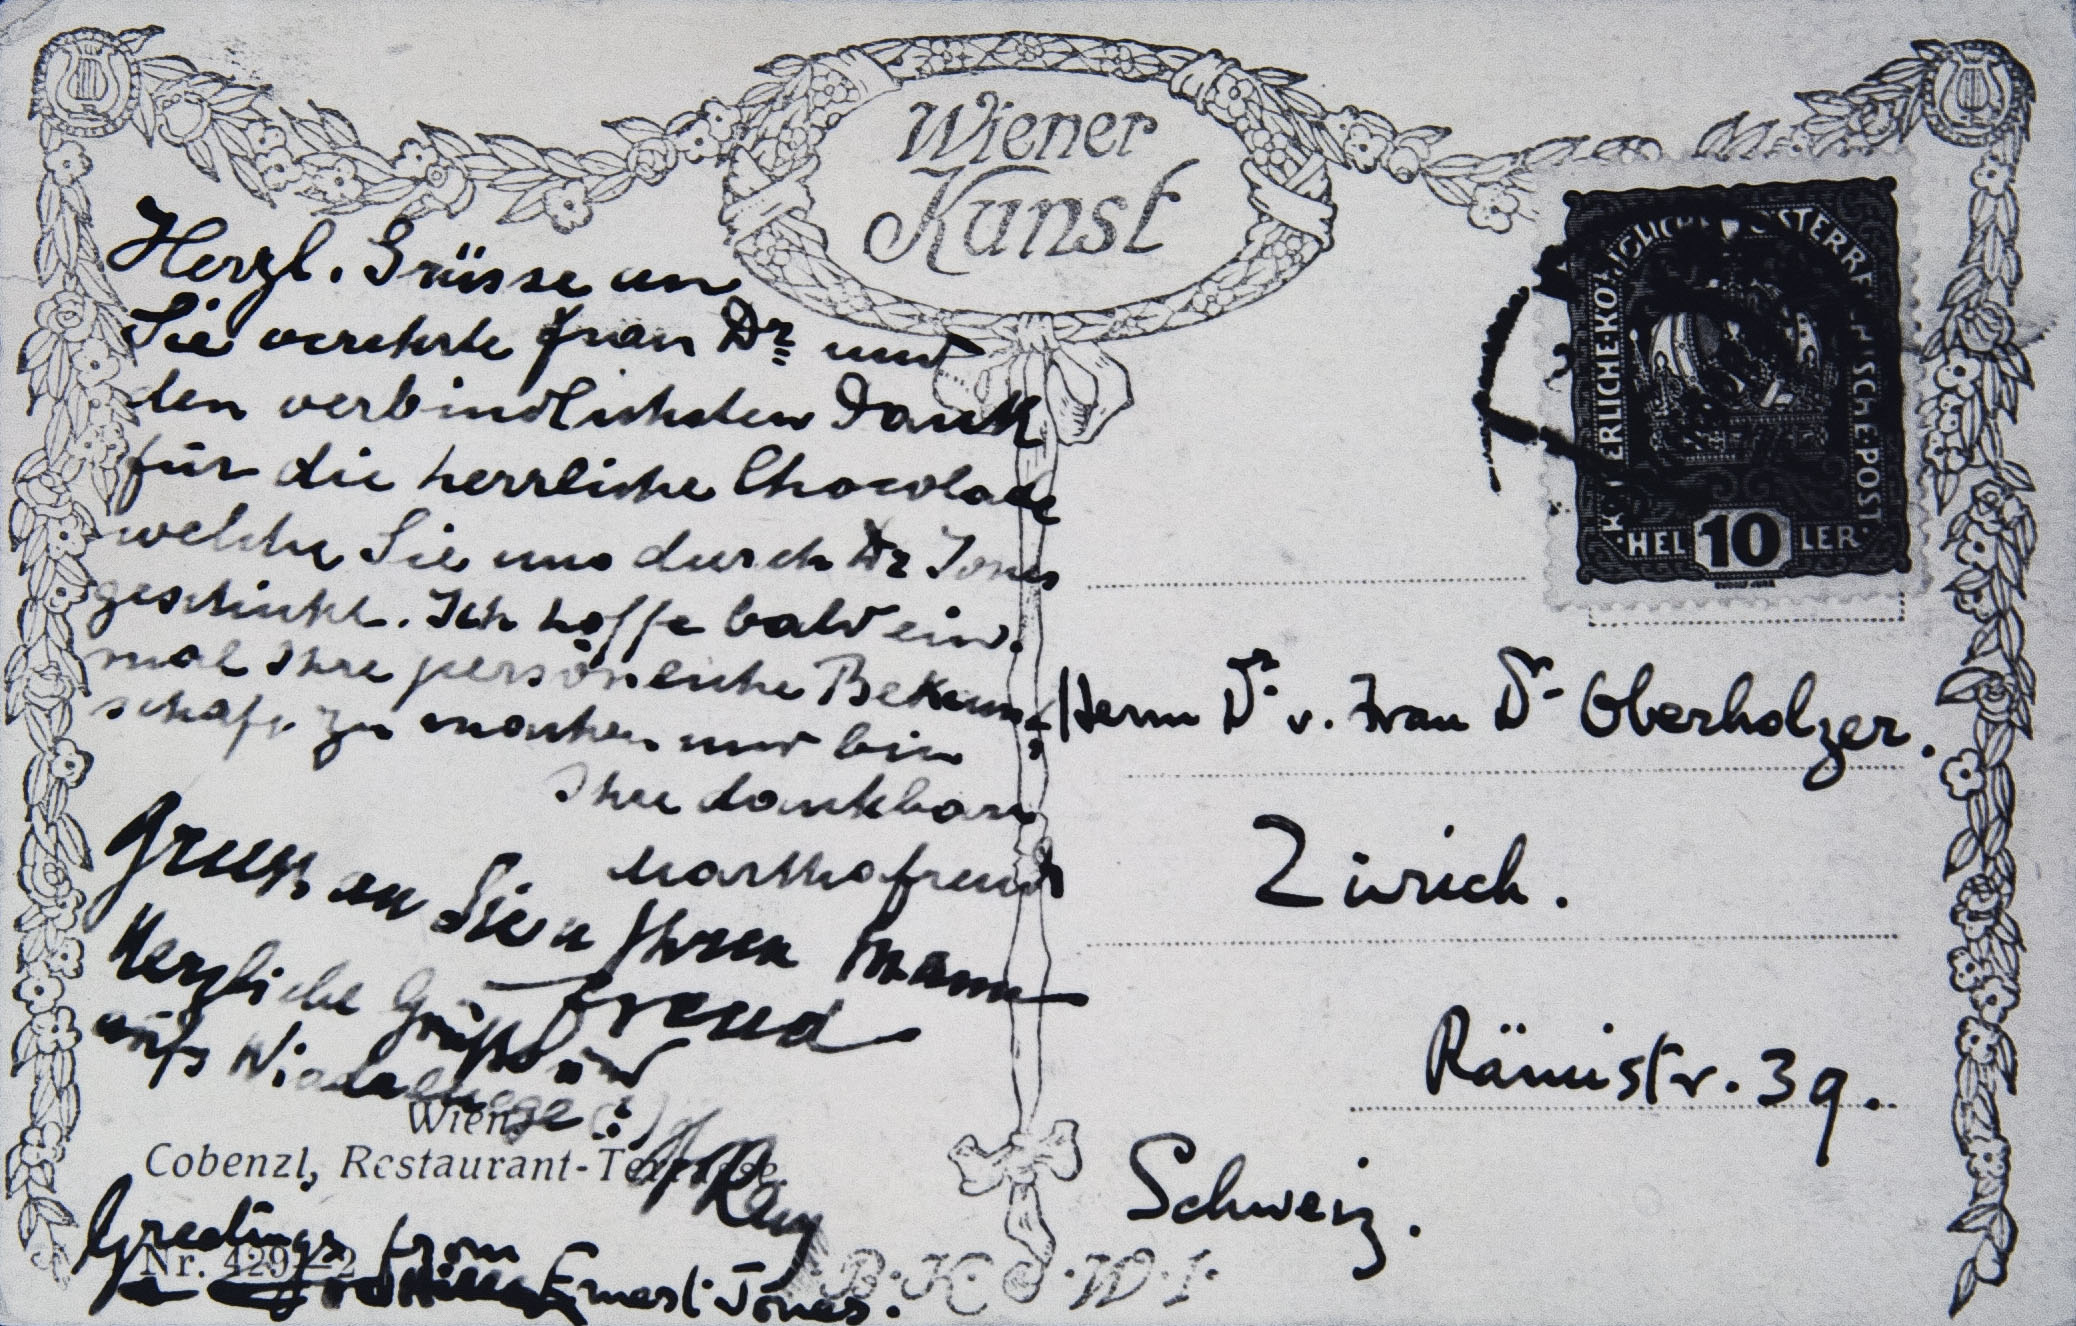 Wiener
Kunst
Herzl. Grüsse an
Sie verehrte Frau Dr und
den verbindlichsten Dank
für die herrliche Chocolade
welche Sie uns durch Dr Jones
geschickt. Ich hoffe bald ein-
mal Ihre persönliche Bekannt
schaft zu machen und bin
Ihre dankbare
Martha Freud
Gruss an Sie u Ihren Mann
Freud
Herzliche Grüße und
aufs
Wien,
Cobenzl, Restaurant-Terrasse.
Greetings from
Nr. 429-2
Ernest Jones.
B·K·W·I·
KAISERLICHEKÖNIGLICHE ÖSTERREICHISCHE POST
HELLER
10
Herrn Dr. u. Frau Dr. Oberholzer.
Zürich.
Rämistr. 39.
Schweiz.